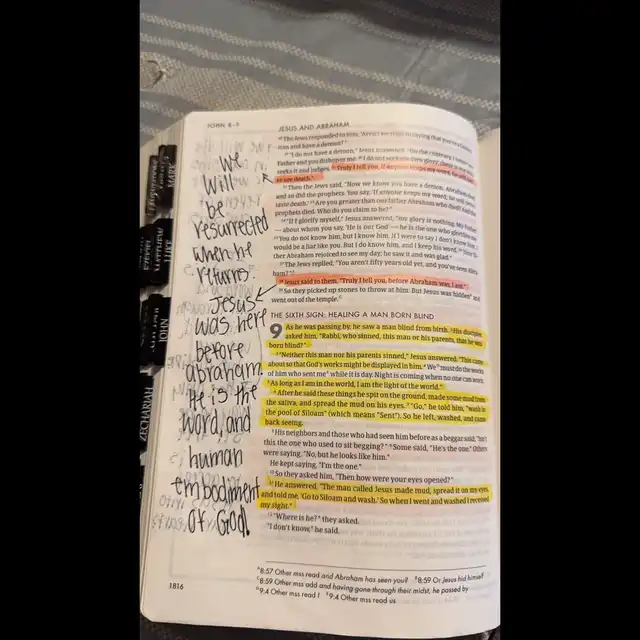 JOHN 8–9
JESUS AND ABRAHAM
"I do not have a demon," Jesus answered. "On the contrary, I honor my
Father and you dishonor me. I do not seek my own glory; there is one who
seeks it and judges. Truly I tell you, if anyone keeps my word, he will never
see death."
Then the Jews said, "Now we know you have a demon. Abraham died
and so did the prophets. You say, 'If anyone keeps my word, he will never taste
death.' Are you greater than our father Abraham who died? And the
prophets died. Who do you claim to be?"
"If I glorify myself," Jesus answered, "my glory is nothing. My Father
— about whom you say, 'He is our God' — he is the one who glorifies me.
You do not know him, but I know him. If I were to say I don't know him, I
would be a liar like you. But I do know him, and I keep his word.
Abraham rejoiced to see my day; he saw it and was glad."
The Jews replied, "You aren't fifty years old yet, and you've seen Abra-
ham?"
Jesus said to them, "Truly I tell you, before Abraham was, I am."
So they picked up stones to throw at him. But Jesus was hidden and
went out of the temple.
THE SIXTH SIGN: HEALING A MAN BORN BLIND
9 As he was passing by, he saw a man blind from birth. His disciples
asked him, "Rabbi, who sinned, this man or his parents, that he was
born blind?"
"Neither this man nor his parents sinned," Jesus answered. "This came
about so that God's works might be displayed in him. We must do the works
of him who sent me while it is day. Night is coming when no one can work.
As long as I am in the world, I am the light of the world."
After he said these things he spit on the ground, made some mud from
the saliva, and spread the mud on his eyes. "Go," he told him, "wash in
the pool of Siloam" (which means "Sent"). So he left, washed, and came
back seeing.
His neighbors and those who had seen him before as a beggar said, "Isn't
this the one who used to sit begging?" Some said, "He's the one." Others
were saying, "No, but he looks like him."
He kept saying, "I'm the one."
So they asked him, "Then how were your eyes opened?"
He answered, "The man called Jesus made mud, spread it on my eyes,
and told me, 'Go to Siloam and wash.' So when I went and washed I received
my sight."
"Where is he?" they asked.
"I don't know," he said.
8:57 Other mss read and Abraham has seen you? 8:59 Or Jesus hid himself
8:59 Other mss add and having gone through their midst, he passed by
9:4 Other mss read I 9:4 Other mss read us
1816
we
will
be
resurrected
when he
returns.
Jesus
was here
before
abraham
He is the
word, and
human
embodiment
of God.
MARK
LUKE
MATTHEW
JOHN
ZECHARIAH